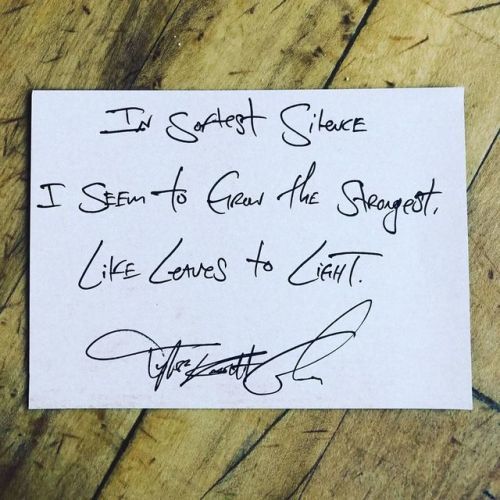 In Softest Silence
I Seem to Grow the Strongest,
Like Leaves to Light.
Tyler Knott Gregson